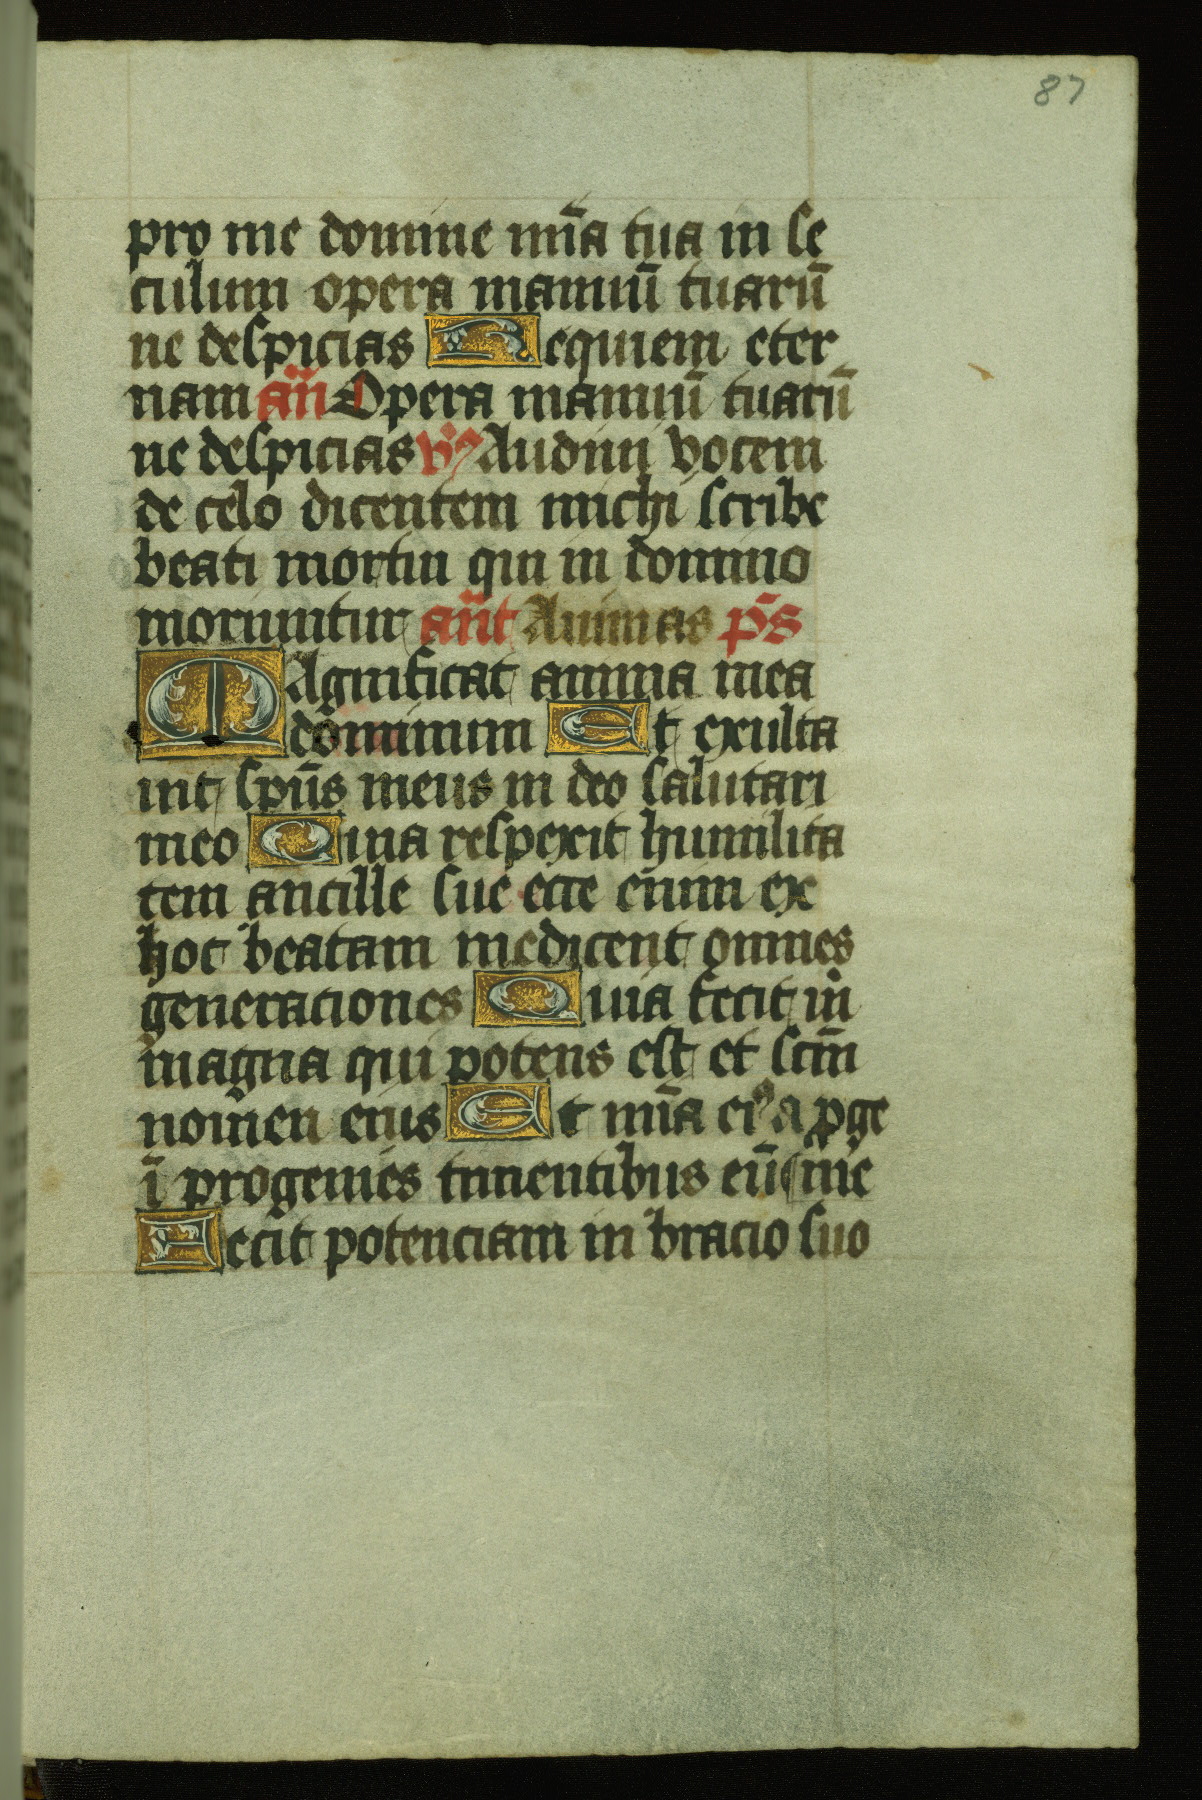 87
pro me domine mīa tua in se
culum opera manuū tuarū
ne despicias Requiem eter
nam an̄ Opera manuū tuarū
ne despicias v̄ Audiui vocem
de celo dicentem michi scribe
beati mortui qui in domino
moriuntur an̄t Animas p̄s
MAgnificat anima mea
dominum Et exulta
uit sp̄us meus in deo salutari
meo Quia respexit humilita
tem ancille sue ecce enim ex
hoc beatam me dicent omnes
generationes Quia fecit m̄
magna qui potens est et scm̄
nomen eius Et mīa eiꝰ a ꝓge
ī progenies timentibus eū
Fecit potenciam in bracio suo